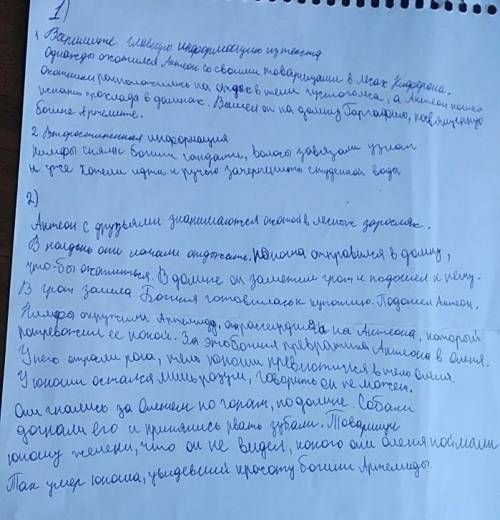 1)
1 Выпишите главную информацию из текста
Однажды охотился Актеон со своими товарищами в лесах Киферона.
охотники расположились на отдых в тени густого леса, а Актеон пошел
искать прохлада в долинах. Вышел он на долину Гаргафию, посвященную
богине Артемиде.
2. Второстепенная информация
Нимфы сняли богини сандалии, волосы завязали узлом
и уже хотели идти к ручью зачерпнуть студеной вода
2)
Актеон с друзьями занимаются охотой в лесных зарослях.
В полдень они начали отдыхать. юноша отправился в долину,
что-бы охотиться. В долине он заметил грот и подошел к нему.
В грот зашла Богиня готовилась к купанию. Подошел Актеон.
Нимфы окружили Артемиду, она рассердилась на Актеона, который
потревожил ее покой. За это богиня превратила Актеона в оленя.
У него отрасли рога, тело юноши превратилось в тело оленя.
У юноши остался лишь разум, говорить он не может.
Они гнались за Оленем по горам, по долине. Собаки
догнали его и принялись рвать зубами. Товарищи
юноши жалели, что он не видел, какого они оленя поймали
Так умер юноша, увидевший красоту богини Артемиды.